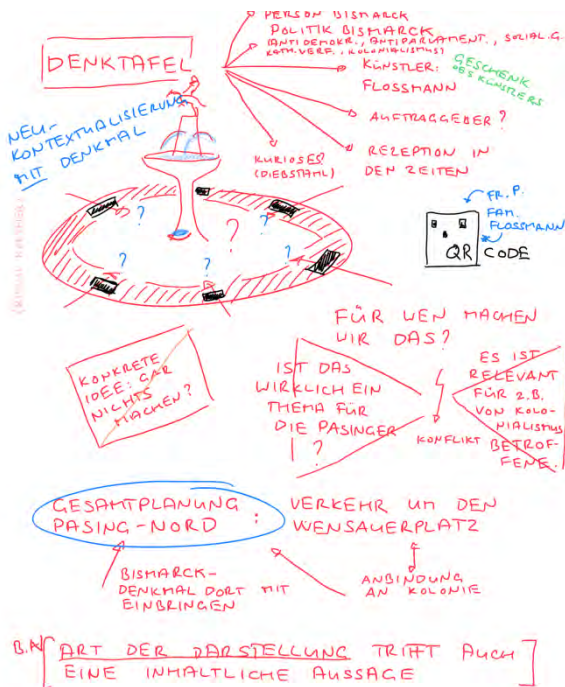 PERSON BISMARCK
POLITIK BISMARCK
(ANTIDEMOKR., ANTIPARLAMENT., SOZIAL.G.
KATH.VERF., KOLONIALISMUS)
DENKTAFEL
KÜNSTLER:
FLOSSMANN
GESCHENK
DES KÜNSTLERS
AUFTRAGGEBER?
REZEPTION IN
DEN ZEITEN
KURIOSES
(DIEBSTAHL)
NEU-
KONTEXTUALISIERUNG
MIT DENKMAL
? ? ? ? ? ? ?
FR. P.
FAM.
FLOSSMANN
QR CODE
FÜR WEN MACHEN
WIR DAS?
KONKRETE
IDEE: GAR
NICHTS
MACHEN?
IST DAS
WIRKLICH EIN
THEMA FÜR
DIE PASINGER
?
KONFLIKT
ES IST
RELEVANT
FÜR Z.B.
VON KOLO-
NIALISMUS
BETROF-
FENE.
GESAMTPLANUNG
PASING-NORD :
VERKEHR UM DEN
WENSAUERPLATZ
BISMARCK-
DENKMAL DORT MIT
EINBRINGEN
ANBINDUNG
AN KOLONIE
B.A
ART DER DARSTELLUNG TRIFFT AUCH
EINE INHALTLICHE AUSSAGE